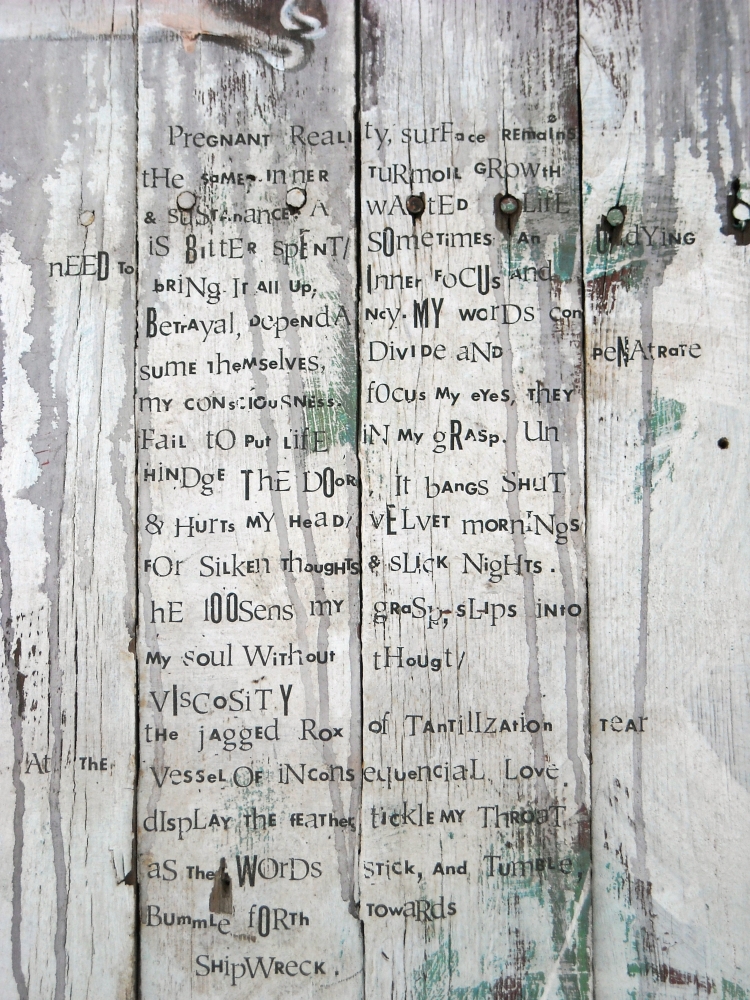 PregNANT Reality, surFace REmaInS
tHe SaME. InnER TuRmoIL GRowtH
& suStanance. A wAStED LifE
iS BittER spENT/ SOmeTIMES An dYING
nEED To bRiNg It All Up, Inner FoCUs and
BetrAyal, DependANcy. MY worDs Con
sume TheMselves, DivIDe aND peNAtraTe
my CONsciOuSNess. fOcus My eYes, tHEY
Fail tO Put LifE iN My gRASp. Un
HiNDgE ThE DOoR, It bangs ShuT
& HurTs MY HeaD/ vELvET morniNgs
FOr SilKen ThougHTs & sLicK NigHTs.
hE lOOSens my gRaSp, sLips iNtO
My soul WiThout tHougt/
VIscoSiTY
tHe jaggEd Rox of TAnTillZAtion TEar
At THE VesseL OF iNconsequenciaL Love
dIspLAY THE fEather, tickle MY ThroaT
aS The WOrDs STick, And TumBLE,
BummLe fORth TowaRds
ShipWreck.